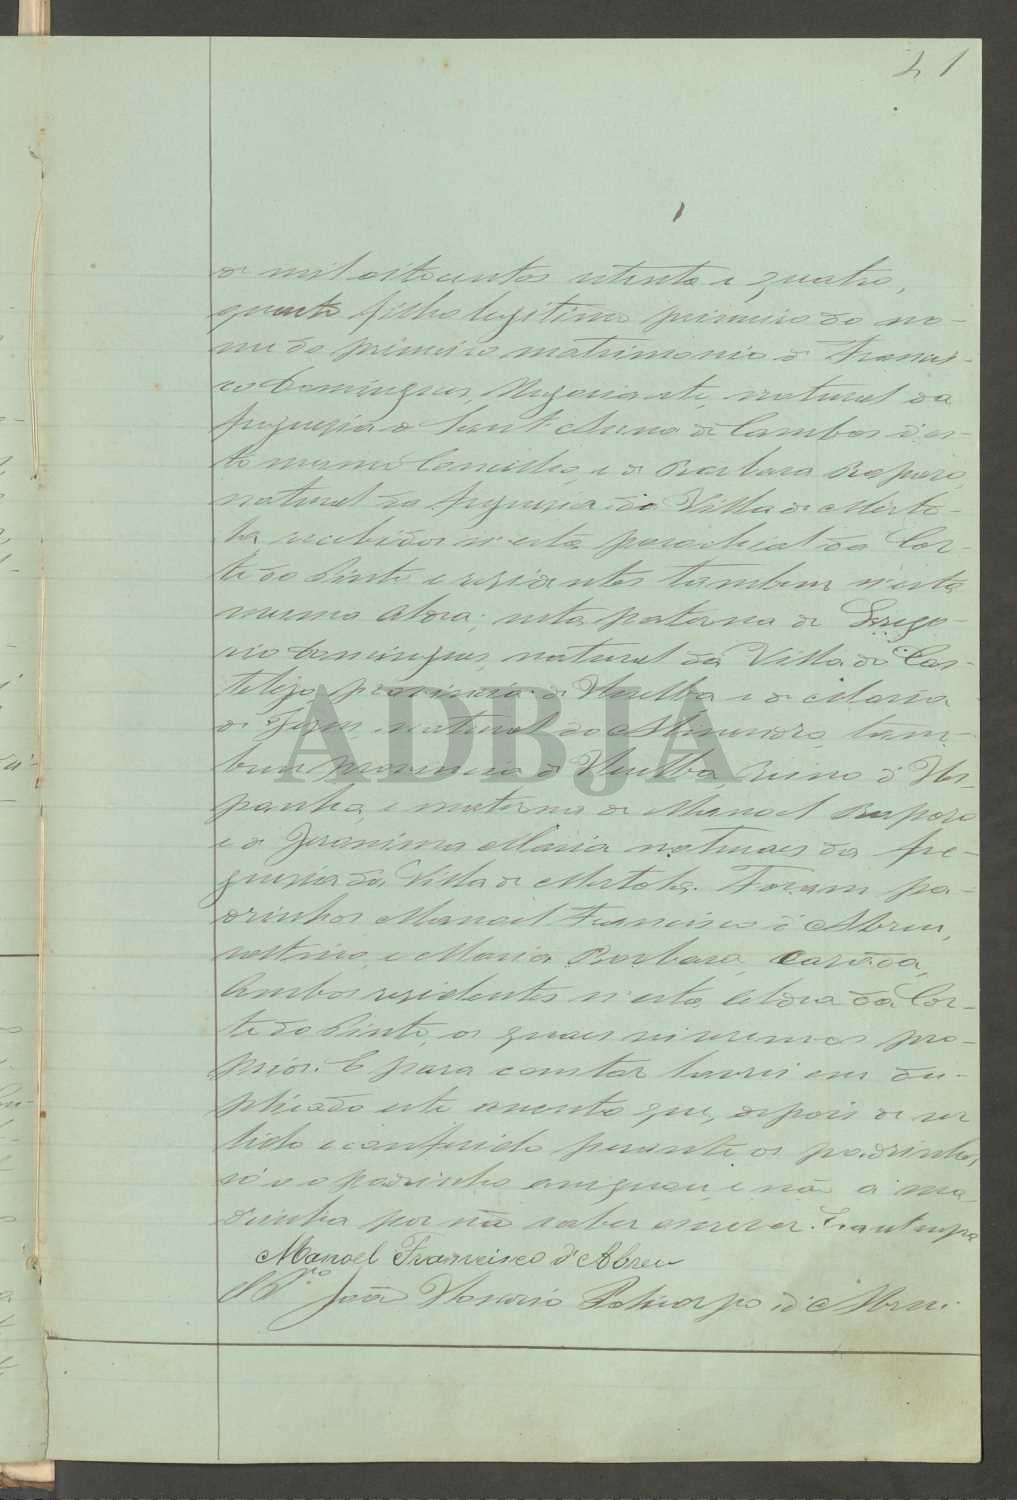 21
de mil oitocentos setenta e quatro,
quarto filho legitimo primeiro do no-
me do primeiro matrimonio de Francis-
co Domingues, Negociante, natural da
freguezia de Sant'Anna de Cambas d'es-
te mesmo Concelho, e de Barbara Raposo,
natural da freguezia da Villa de Merto-
la recebidos n'esta parochial da Cor-
te do Pinto e residentes tambem n'esta
mesma Aldea; neta paterna de Grego-
rio Domingues, natural da Villa do Cas-
tilejo, provincia de Huelba e de Maria
de Jezus, natural do Almendro, tam-
bem provincia de Huelba, Reino d'Hes-
panha, e materna de Manoel Raposo
e de Jeronima Maria naturaes da fre-
guezia da Villa de Mertola. Foram pa-
drinhos Manoel Francisco d'Abreu,
e Maria Barbara, casada,
Ambos residentes n'esta Aldea da Cor-
te do Pinto, os quaes
prios. E para constar lavrei em du-
plicado este assento que, depois de ser
lido e conferido perante os padrinhos,
só o padrinho assignou, e não a ma-
drinha por não saber escrever. Era ut supra
Manoel Francisco d'Abreu
João Policarpo d'Abreu.
ADBJA